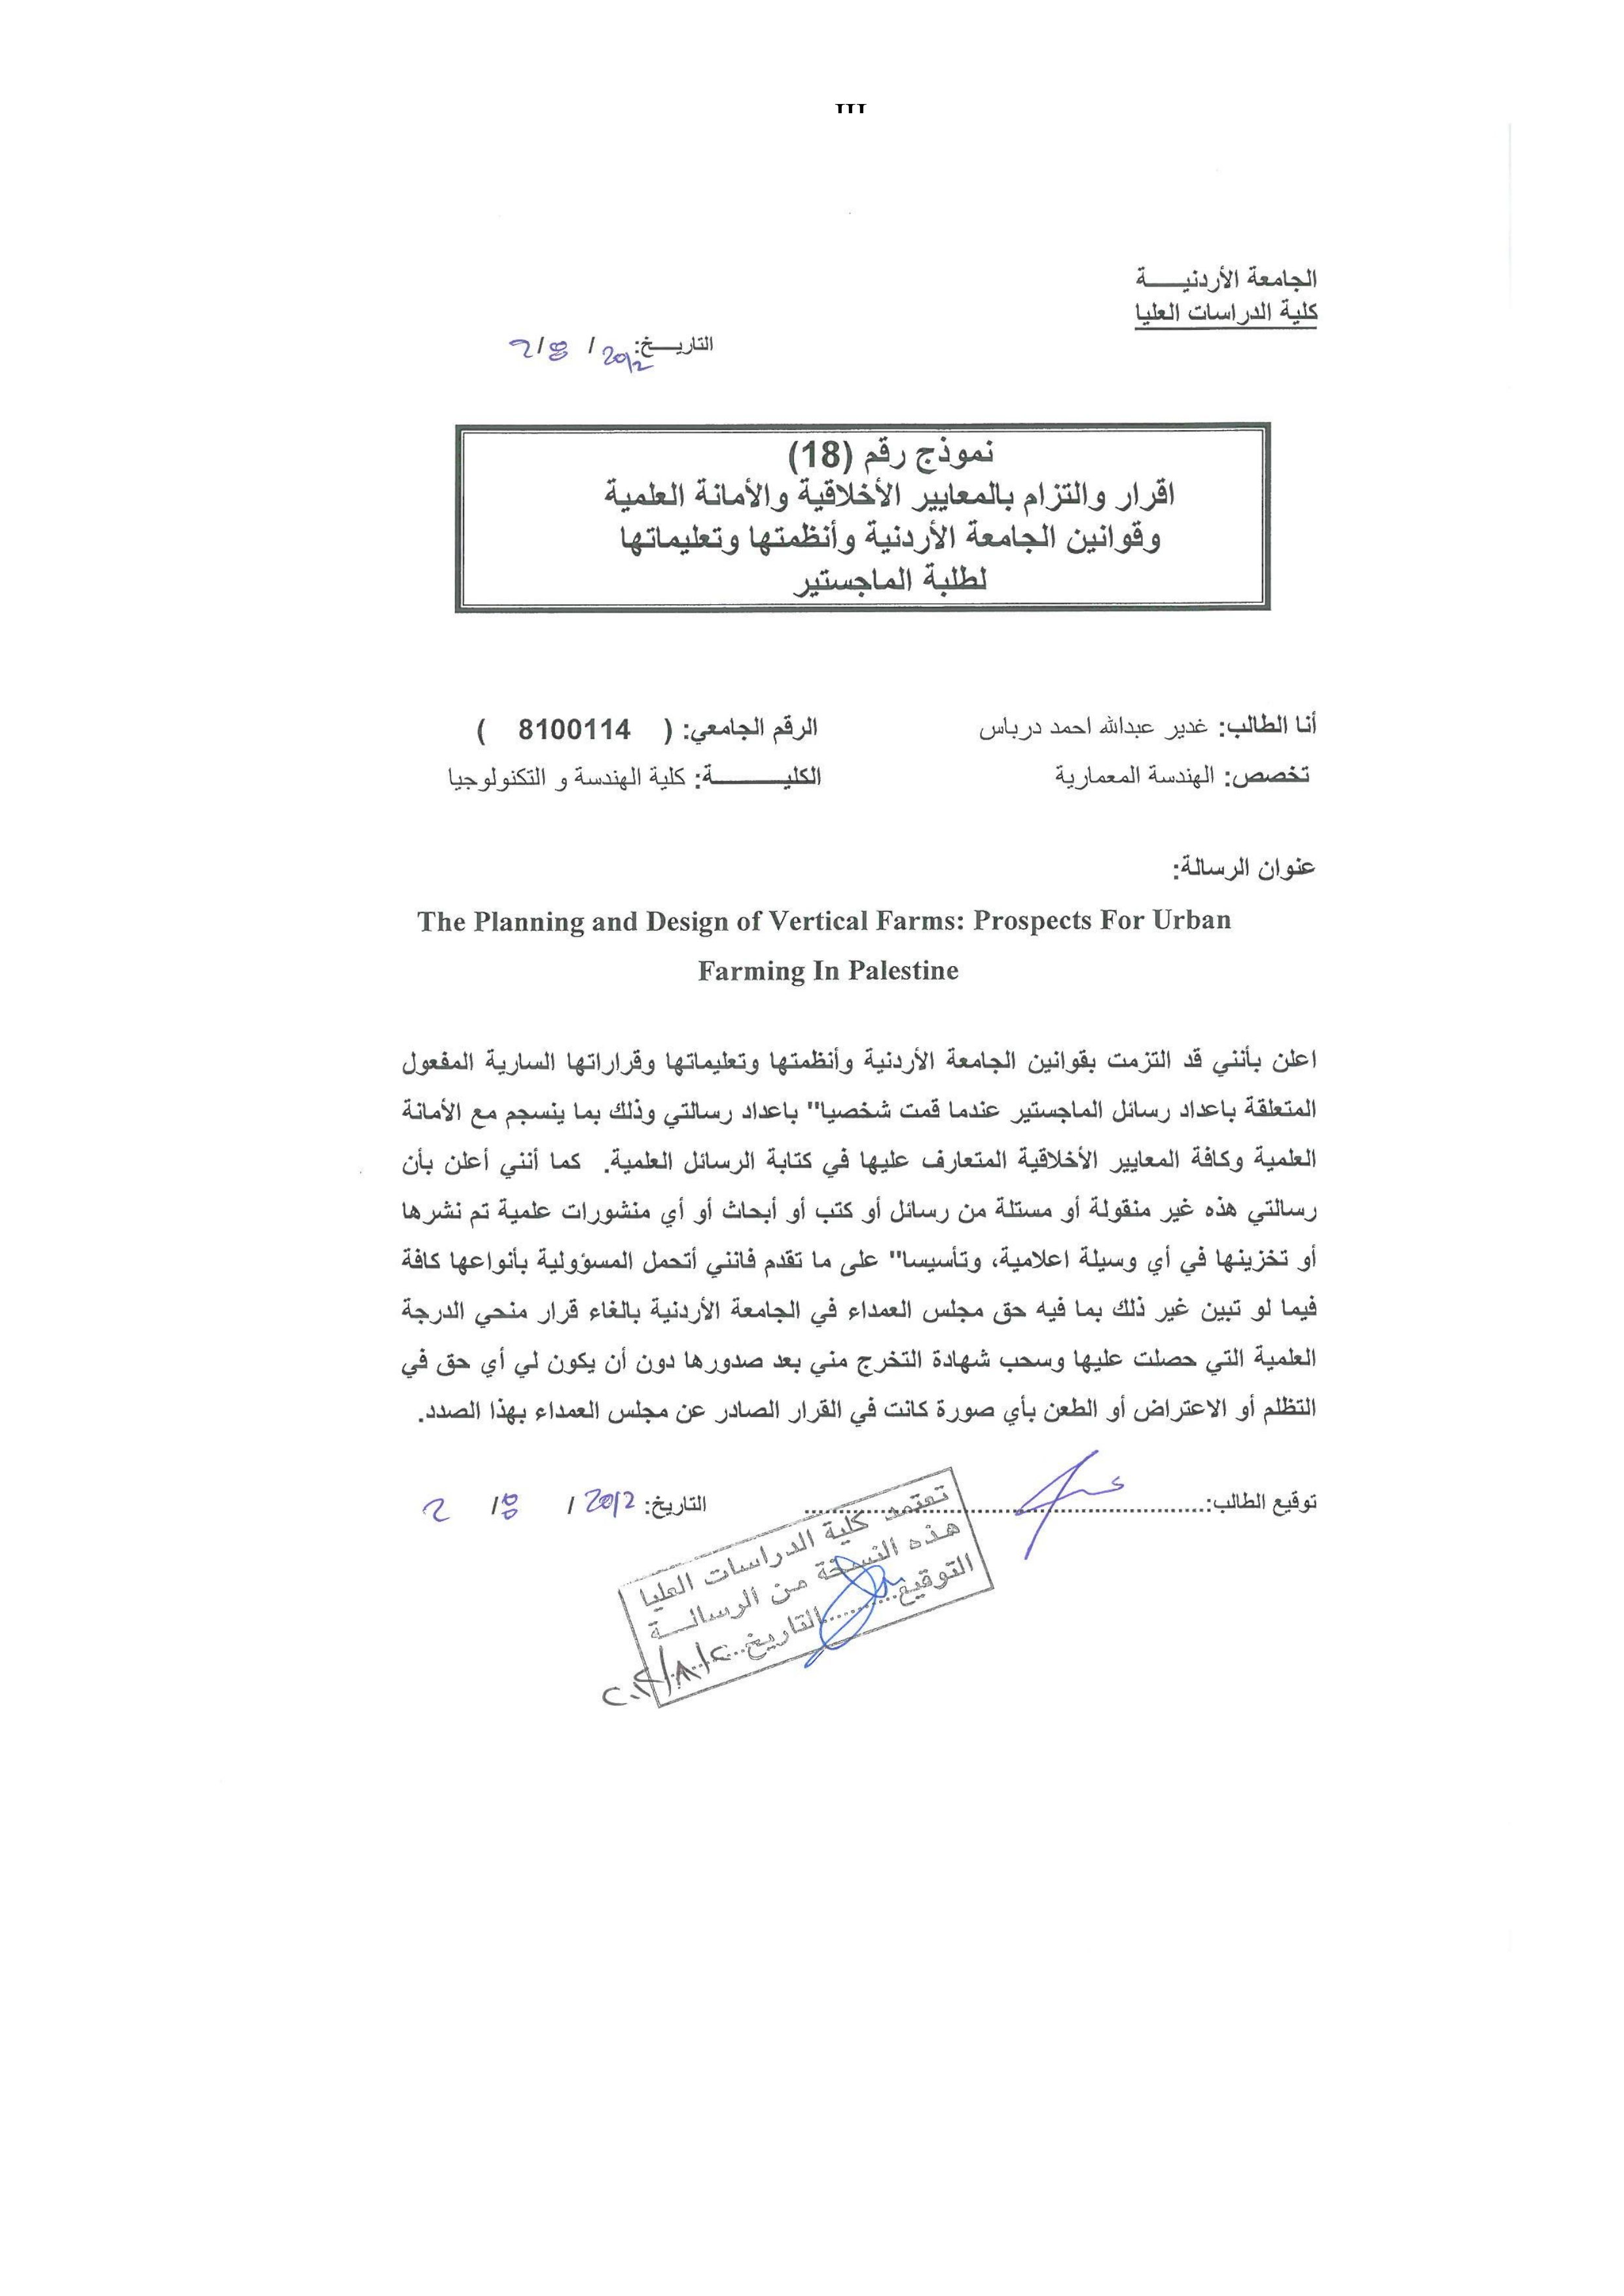 III
الجامعة الأردنيـــــة
كلية الدراسات العليا
التاريـــخ: 2012 / 8/2
نموذج رقم (18)
اقرار والتزام بالمعايير الأخلاقية والأمانة العلمية
وقوانين الجامعة الأردنية وأنظمتها وتعليماتها
لطلبة الماجستير
أنا الطالب: غدير عبدالله احمد درباس الرقم الجامعي: ( 8100114 )
تخصص: الهندسة المعمارية الكليـــــــــة: كلية الهندسة و التكنولوجيا
عنوان الرسالة:
The Planning and Design of Vertical Farms: Prospects For Urban
Farming In Palestine
اعلن بأنني قد التزمت بقوانين الجامعة الأردنية وأنظمتها وتعليماتها وقراراتها السارية المفعول
المتعلقة باعداد رسائل الماجستير عندما قمت شخصيا" باعداد رسالتي وذلك بما ينسجم مع الأمانة
العلمية وكافة المعايير الأخلاقية المتعارف عليها في كتابة الرسائل العلمية. كما أنني أعلن بأن
رسالتي هذه غير منقولة أو مستلة من رسائل أو كتب أو أبحاث أو أي منشورات علمية تم نشرها
أو تخزينها في أي وسيلة اعلامية، وتأسيسا" على ما تقدم فانني أتحمل المسؤولية بأنواعها كافة
فيما لو تبين غير ذلك بما فيه حق مجلس العمداء في الجامعة الأردنية بالغاء قرار منحي الدرجة
العلمية التي حصلت عليها وسحب شهادة التخرج مني بعد صدورها دون أن يكون لي أي حق في
التظلم أو الاعتراض أو الطعن بأي صورة كانت في القرار الصادر عن مجلس العمداء بهذا الصدد.
توقيع الطالب:........................................................ التاريخ: 2012 / 8/ 2
تعتمد كلية الدراسات العليا
هذه النسخة من الرسالـــة
التوقيع............التاريخ..٢/٨/٢٠١٢